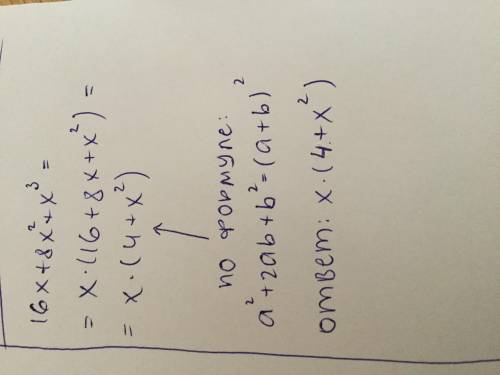 16x+8x²+x³=
= x·(16+8x+x²)=
= x·(4+x²)
по формуле:
a²+2ab+b²=(a+b)²
ответ: x·(4+x²)